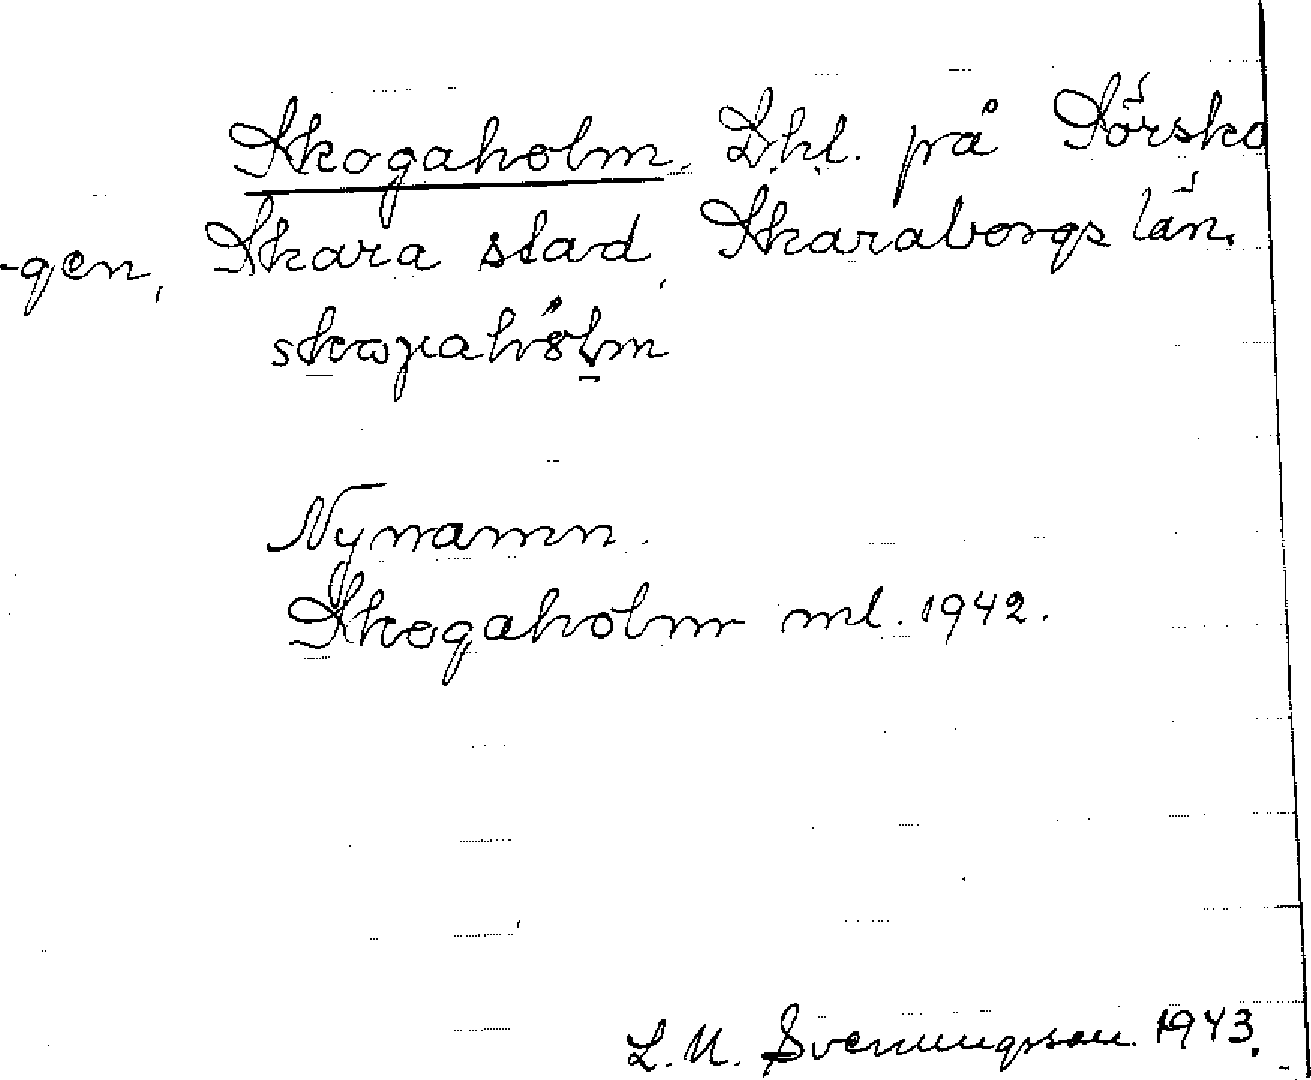 Skogaholm, Lhl. på Sörsko
-gen, Skara stad, Skaraborgs län.
Nynamn.
Skogaholm ml. 1942.
L. M. Svenungsson 1943.